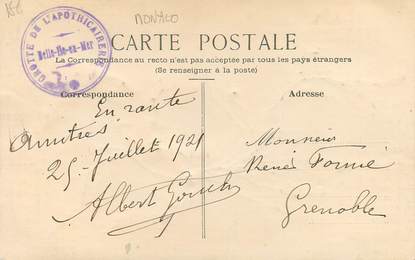 MONACO
GROTTE DE L'APOTHICAIRERIE
Belle-Ile-en-Mer
CARTE POSTALE
La Correspondance au recto n'est pas acceptée par tous les pays étrangers
(Se renseigner à la poste)
Correspondance
En route
Amitiés
25 Juillet 1921
Albert
Adresse
Monsieur
René
Grenoble